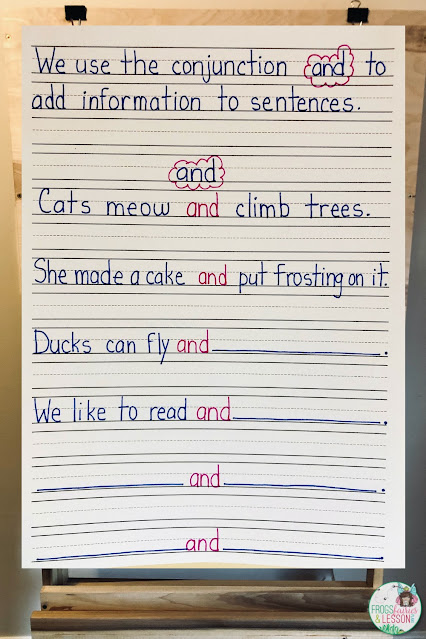 We use the conjunction and to
add information to sentences.
and
Cats meow and climb trees.
She made a cake and put frosting on it.
Ducks can fly and ____________.
We like to read and ____________.
____________ and ____________.
____________ and ____________.
FROGS
fairies
& LESSON